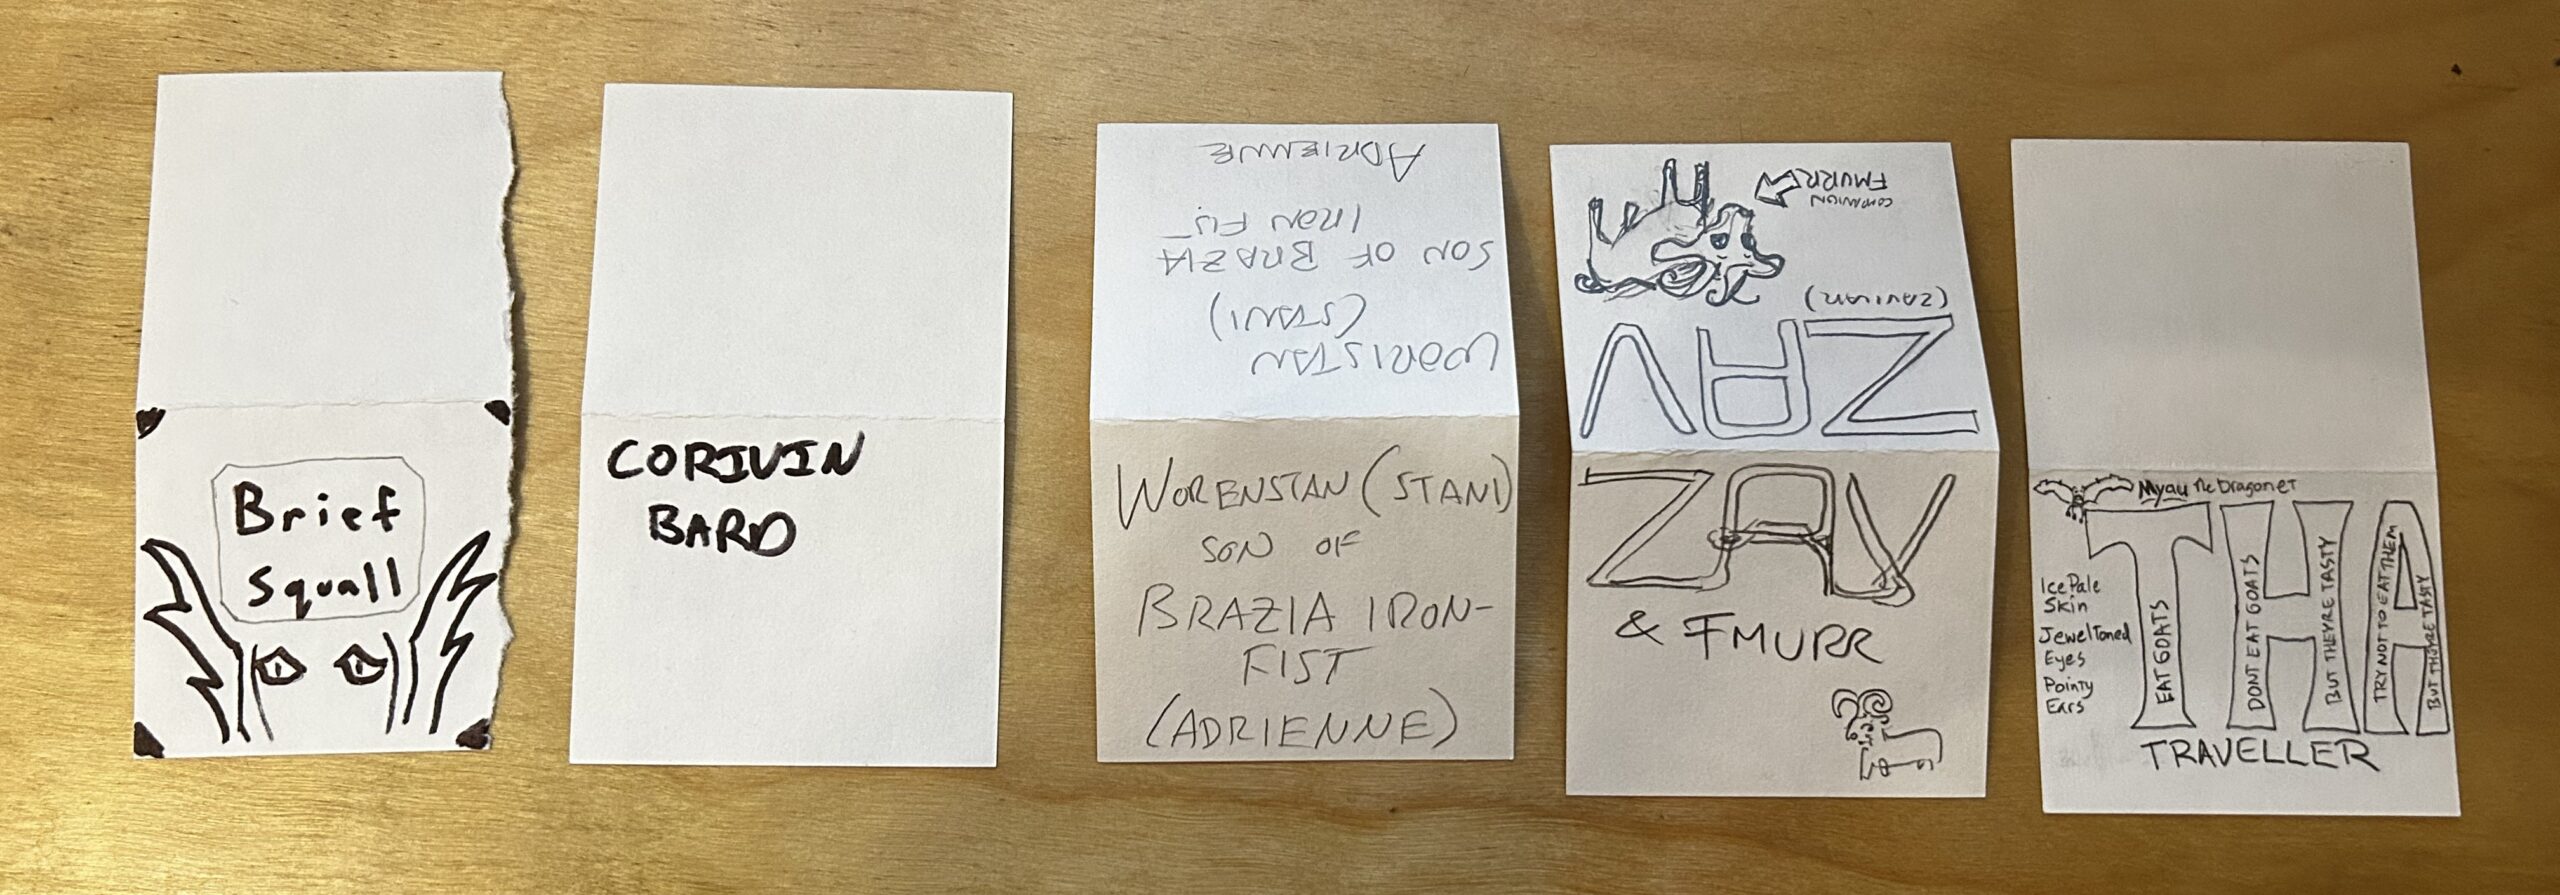 Brief
Squall
CORIVIN
BARD
WORISTAN
(STANI)
SON OF BRAZIA
IRON FIST
ADRIENNE
WORENSTAN (STANI)
SON OF
BRAZIA IRON-
FIST
(ADRIENNE)
ZAV
(ZAVIVAR)
COMPANION
FMURR
ZAV
& FMURR
Myau The Dragonet
THA
Ice Pale
Skin
Jewel Toned
Eyes
Pointy
Ears
EAT GOATS
DONT EAT GOATS
BUT THEYRE TASTY
TRY NOT TO EAT THEM
BUT THEYRE TASTY
TRAVELLER